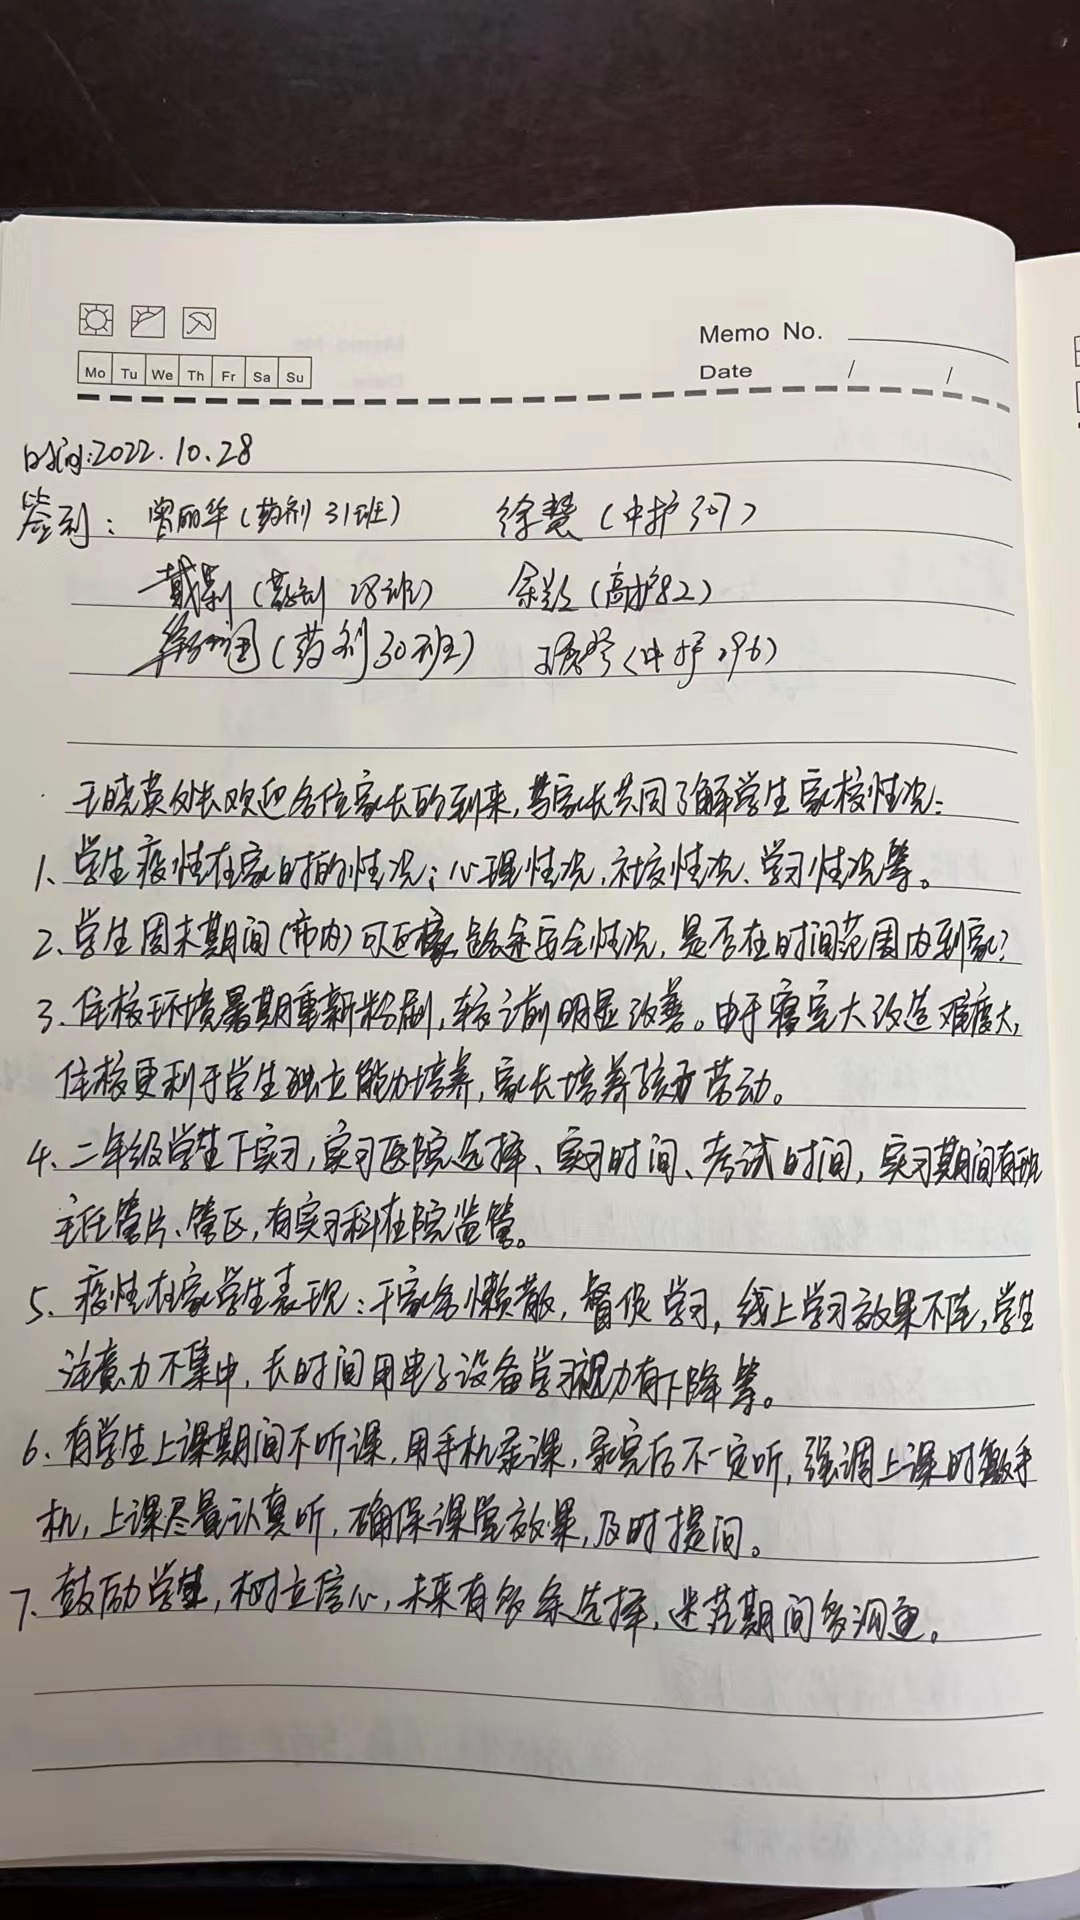 Memo No.
Mo Tu We Th Fr Sa Su
Date / /
时间:2022.10.28
签到: 曾丽华(药剂31班) 徐慧(中护307)
戴(药剂28班) 余(高护82)
(药剂30班) (中护296)
王晓英处长欢迎各位家长的到来,与家长共同了解学生家校情况:
1、学生疫情在家时的情况:心理情况,社交情况、学习情况等。
2、学生周末期间(市内)可返家,途安全情况,是否在时间范围内到家?
3、住校环境暑期重新粉刷,较之前明显改善。由于寝室大改造难度大,
住校更利于学生独立能力培养,家长培养孩子劳动。
4、二年级学生下实习,实习医院选择、实习时间、考试时间,实习期间有班
主任管片、管区,有实习科在院监管。
5、疫情在家学生表现:于家会懒散,督促学习,线上学习效果不佳,学生
注意力不集中,长时间用电子设备学习视力有下降等。
6、有学生上课期间不听课,用手机录课,录完后不一定听,强调上课时手
机,上课尽量认真听,确保课堂效果,及时提问。
7、鼓励学生,树立信心,未来有多条选择,迷茫期间多沟通。